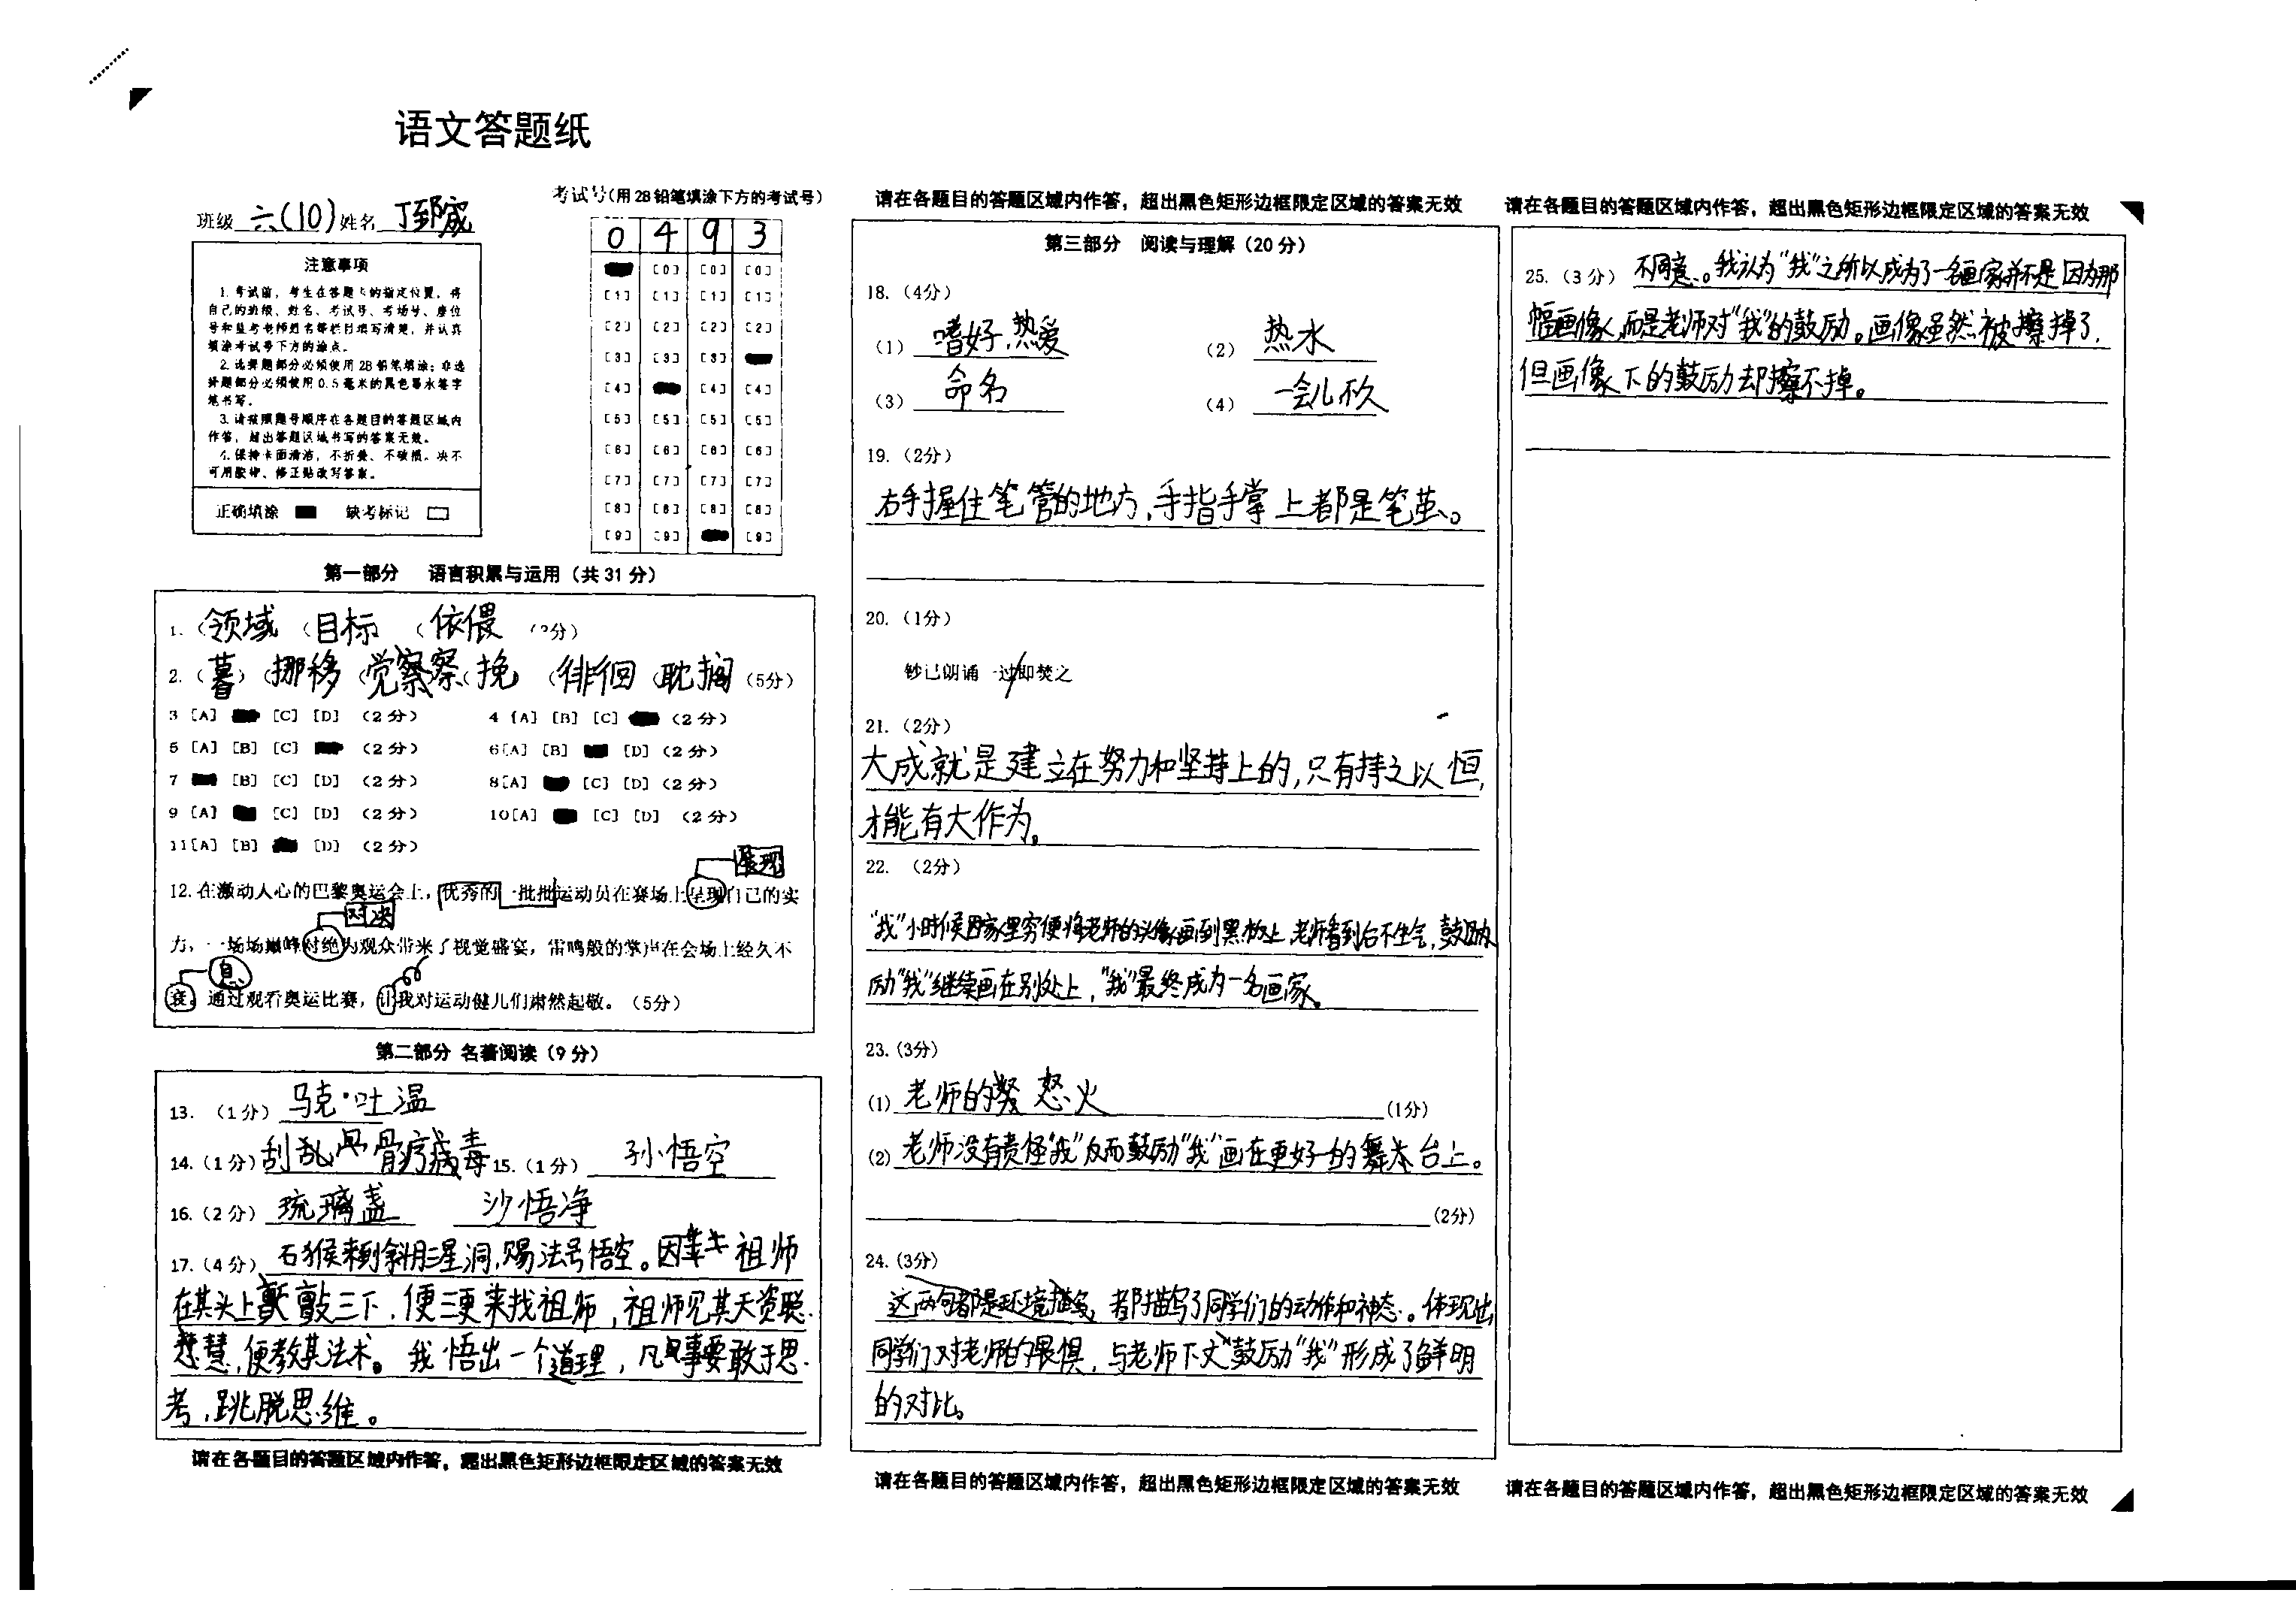 语文答题纸
班级 六(10) 姓名
考试号(用2B铅笔填涂下方的考试号)
0 4 9 3
[0] [0] [0]
[1] [1] [1] [1]
[2] [2] [2] [2]
[3] [3] [3]
[4] [4] [4]
[5] [5] [5] [5]
[6] [6] [6] [6]
[7] [7] [7] [7]
[8] [8] [8] [8]
[9] [9] [9]
注意事项
1. 考试前,考生在答题卡的指定位置,将
自己的班级、姓名、考试号、考场号、座位
号和监考老师姓名等栏目填写清楚,并认真
填涂考试号下方的涂点。
2. 选择题部分必须使用2B铅笔填涂;非选
择题部分必须使用0.5毫米的黑色墨水签字
笔书写。
3. 请按照题号顺序在各题目的答题区域内
作答,超出答题区域书写的答案无效。
4. 保持卡面清洁,不折叠、不破损。决不
可用胶带、修正贴改写答案。
正确填涂 缺考标记
第一部分 语言积累与运用(共31分)
1. (领域 (目标 (依偎 (3分)
2. (暮) (挪移 (觉察 (挽 (徘徊 (耽搁 (5分)
3 [A] [C] [D] (2分) 4 [A] [B] [C] (2分)
5 [A] [B] [C] (2分) 6[A] [B] [D] (2分)
7 [B] [C] [D] (2分) 8[A] [C] [D] (2分)
9 [A] [C] [D] (2分) 10[A] [C] [D] (2分)
11[A] [B] [D] (2分)
展现
12. 在激动人心的巴黎奥运会上,优秀的一批批运动员在赛场上呈现自己的实
对决
力,一场场巅峰对绝为观众带来了视觉盛宴,雷鸣般的掌声在会场上经久不
息
衰。通过观看奥运比赛,让我对运动健儿们肃然起敬。(5分)
第二部分 名著阅读(9分)
13. (1分) 马克·吐温
14. (1分) 刮乱 骨疗病毒 15. (1分) 孙悟空
16. (2分) 琉璃盏 沙悟净
17. (4分) 石猴来到斜月三星洞,赐法号悟空。因 祖师
在其头上敲三下,便三更来找祖师,祖师见其天资聪
慧,便教其法术。我悟出一个道理,凡事要敢于思
考,跳脱思维。
请在各题目的答题区域内作答,超出黑色矩形边框限定区域的答案无效
请在各题目的答题区域内作答,超出黑色矩形边框限定区域的答案无效
第三部分 阅读与理解(20分)
18. (4分)
(1) 嗜好,热爱 (2) 热水
(3) 命名 (4) 一会儿不久
19. (2分)
右手握住笔管的地方,手指手掌上都是笔茧。
20. (1分)
钞已朗诵一过/即焚之
21. (2分)
大成就是建立在努力和坚持上的,只有持之以恒,
才能有大作为。
22. (2分)
"我"小时候因家里穷便将老师的头像画到黑板上,老师看到后不生气,鼓
励"我"继续画在别处上,"我"最终成为一名画家。
23. (3分)
(1) 老师的怒火 (1分)
(2) 老师没有责怪"我"反而鼓励"我"画在更好的舞台上。
(2分)
24. (3分)
这两句都是环境描写,都描写了同学们的动作和神态。体现出
同学们对老师的畏惧,与老师下文鼓励"我"形成了鲜明
的对比。
请在各题目的答题区域内作答,超出黑色矩形边框限定区域的答案无效
请在各题目的答题区域内作答,超出黑色矩形边框限定区域的答案无效
25. (3分) 不同意。我认为"我"之所以成为了一名画家并不是因为那
幅画像,而是老师对"我"的鼓励。画像虽然被擦掉了,
但画像下的鼓励却擦不掉。
请在各题目的答题区域内作答,超出黑色矩形边框限定区域的答案无效